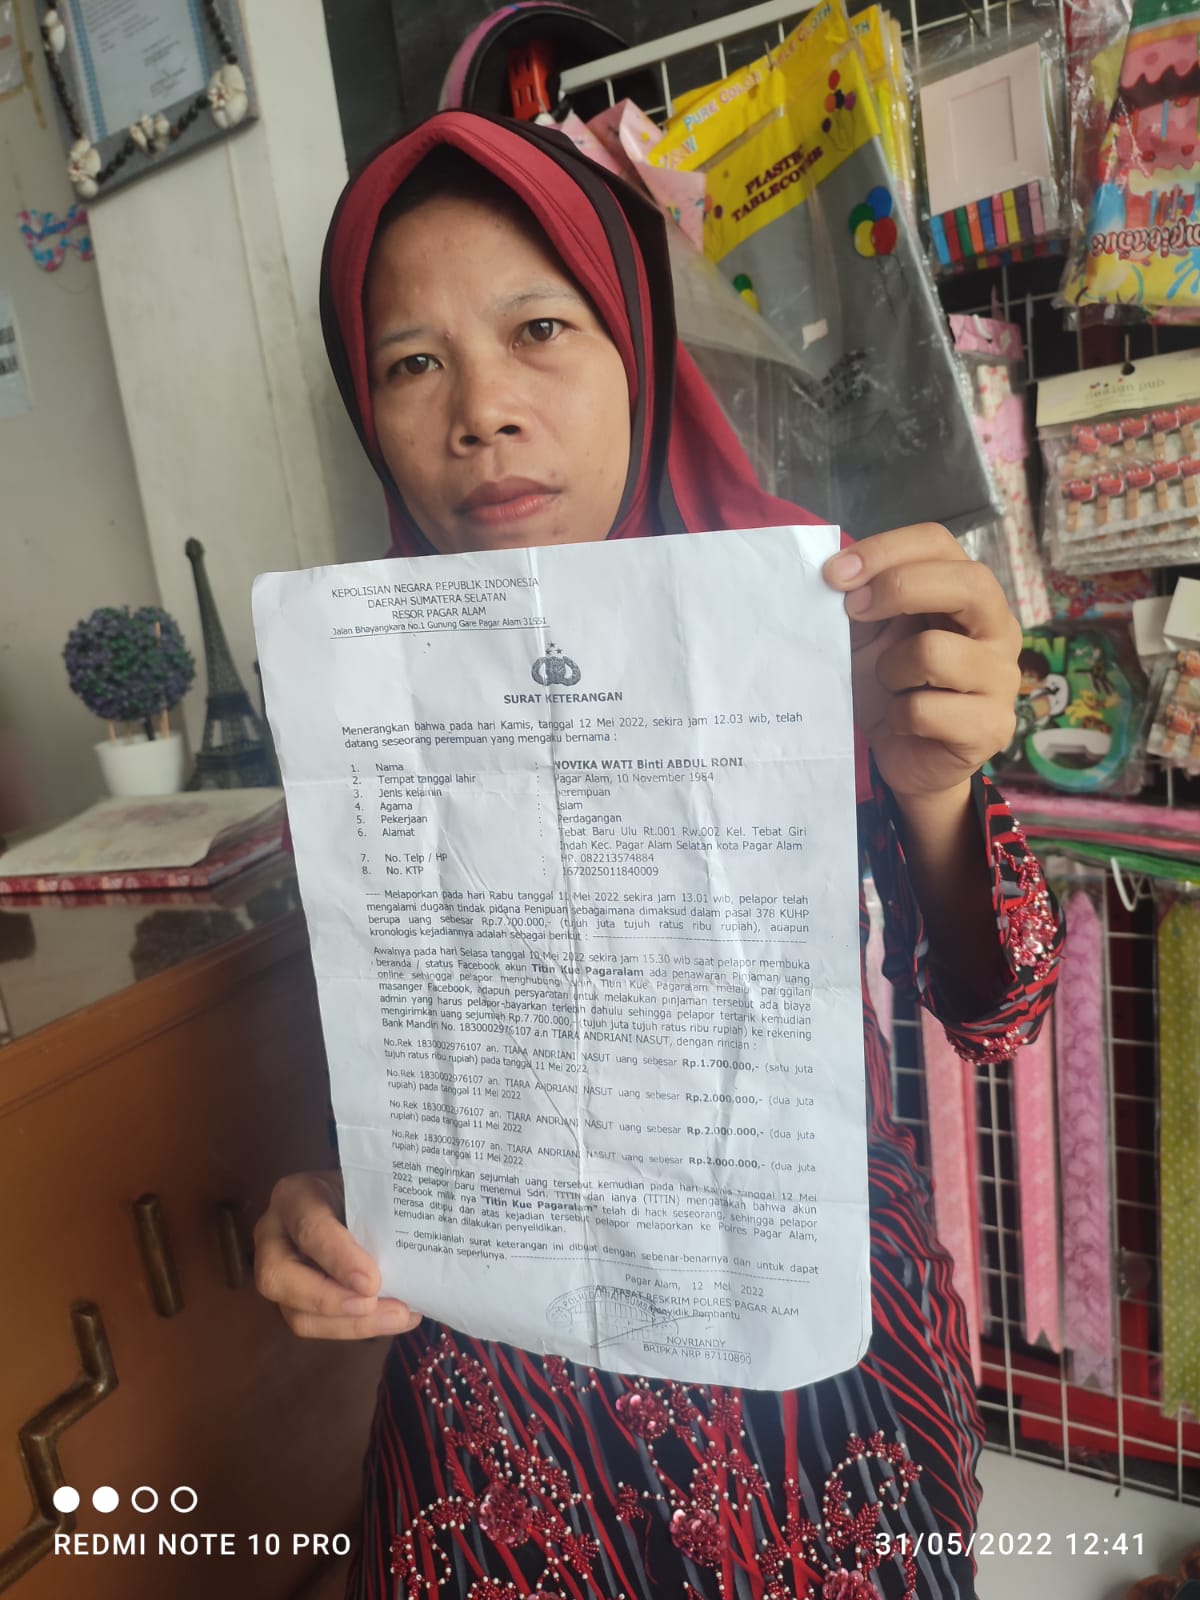 KEPOLISIAN NEGARA REPUBLIK INDONESIA
DAERAH SUMATERA SELATAN
RESOR PAGAR ALAM
Jalan Bhayangkara No.1 Gunung Gare Pagar Alam 31551
SURAT KETERANGAN
Menerangkan bahwa pada hari Kamis, tanggal 12 Mei 2022, sekira jam 12.03 wib, telah
datang seseorang perempuan yang mengaku bernama :
1. Nama : NOVIKA WATI Binti ABDUL RONI
2. Tempat tanggal lahir : Pagar Alam, 10 November 1984
3. Jenis kelamin : Perempuan
4. Agama : Islam
5. Pekerjaan : Perdagangan
6. Alamat : Tebat Baru Ulu Rt.001 Rw.002 Kel. Tebat Giri
Indah Kec. Pagar Alam Selatan kota Pagar Alam
7. No. Telp / HP : HP. 082213574884
8. No. KTP : 1672025011840009
---- Melaporkan pada hari Rabu tanggal 11 Mei 2022 sekira jam 13.01 wib, pelapor telah
mengalami dugaan tindak pidana Penipuan sebagaimana dimaksud dalam pasal 378 KUHP
berupa uang sebesar Rp.7.700.000,- (tujuh juta tujuh ratus ribu rupiah), adapun
kronologis kejadiannya adalah sebagai berikut :
Awalnya pada hari Selasa tanggal 10 Mei 2022 sekira jam 15.30 wib saat pelapor membuka
beranda / status Facebook akun Titin Kue Pagaralam ada penawaran Pinjaman uang
online sehingga pelapor menghubungi akun Titin Kue Pagaralam melalui panggilan
masanger Facebook, adapun persyaratan untuk melakukan pinjaman tersebut ada biaya
admin yang harus pelapor bayarkan terlebih dahulu sehingga pelapor tertarik kemudian
mengirimkan uang sejumlah Rp.7.700.000,-(tujuh juta tujuh ratus ribu rupiah) ke rekening
Bank Mandiri No. 1830002976107 a.n TIARA ANDRIANI NASUT, dengan rincian :
No.Rek 1830002976107 an. TIARA ANDRIANI NASUT uang sebesar Rp.1.700.000,- (satu juta
tujuh ratus ribu rupiah) pada tanggal 11 Mei 2022
No.Rek 1830002976107 an. TIARA ANDRIANI NASUT uang sebesar Rp.2.000.000,- (dua juta
rupiah) pada tanggal 11 Mei 2022
No.Rek 1830002976107 an. TIARA ANDRIANI NASUT uang sebesar Rp.2.000.000,- (dua juta
rupiah) pada tanggal 11 Mei 2022
No.Rek 1830002976107 an. TIARA ANDRIANI NASUT uang sebesar Rp.2.000.000,- (dua juta
rupiah) pada tanggal 11 Mei 2022
setelah megirimkan sejumlah uang tersebut kemudian pada hari Kamis tanggal 12 Mei
2022 pelapor baru menemui Sdri. TITIN dan ianya (TITIN) mengatakan bahwa akun
Facebook milik nya "Titin Kue Pagaralam" telah di hack seseorang, sehingga pelapor
merasa ditipu dan atas kejadian tersebut pelapor melaporkan ke Polres Pagar Alam,
kemudian akan dilakukan penyelidikan.
---- demikianlah surat keterangan ini dibuat dengan sebenar-benarnya dan untuk dapat
dipergunakan seperlunya.
Pagar Alam, 12 Mei 2022
An. KASAT RESKRIM POLRES PAGAR ALAM
Penyidik Pembantu
NOVRIANDY
BRIPKA NRP 87110890
PURE COLOR TABLE CLOTH
PLASTIC
TABLECOVER
design pub
REDMI NOTE 10 PRO
31/05/2022 12:41